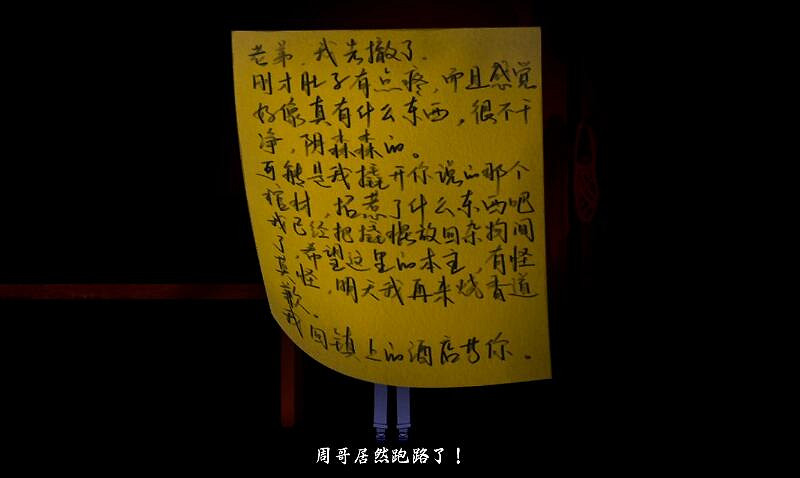 老弟,我先撤了。
刚才肚子有点疼,而且感觉
好像真有什么东西,很不干
净,阴森森的。
可能是我撬开你说的那个
棺材,招惹了什么东西吧
我已经把撬棍放回杂物间
了,希望这里的本主,有怪
莫怪,明天我再来烧香道
歉。
我回镇上的酒店等你。
周哥居然跑路了!